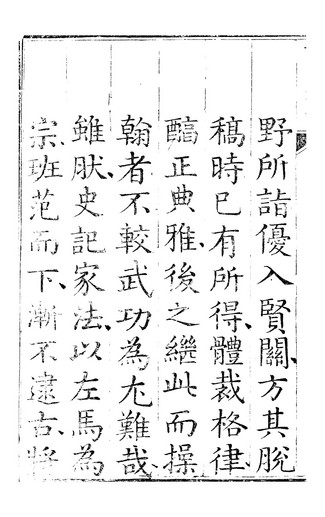 野所詣優入賢關、方其脫
稿時已有所得、體裁格律、
醕正典雅、後之繼此而操
翰者不較武功為尤難哉、
雖肰史記家法、以左馬為
宗、班范而下、漸不逮古、將